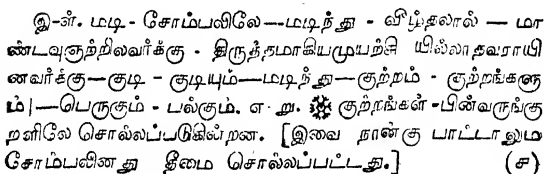 இ-ள். மடி - சோம்பலிலே—மடிந்து - வீழ்தலால் — மா
ண்டவுஞற்றிலவர்க்கு - திருத்தமாகியமுயற்சி யில்லாதவராயி
னவர்க்கு—குடி - குடியும்—மடிந்து—குற்றம் - குற்றங்களு
ம்|—பெருகும் - பல்கும். எ - று. ❋ குற்றங்கள் - பின்வருங்கு
றளிலே சொல்லப்படுகின்றன. [இவை நான்கு பாட்டானும்
சோம்பலினது தீமை சொல்லப்பட்டது.] (ச)